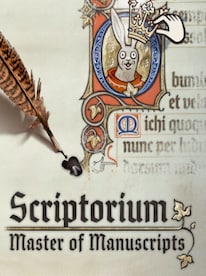 sempe
bunl
et vela
Michi quoqu
nunc per lud
Scriptorium
Master of Manuscripts